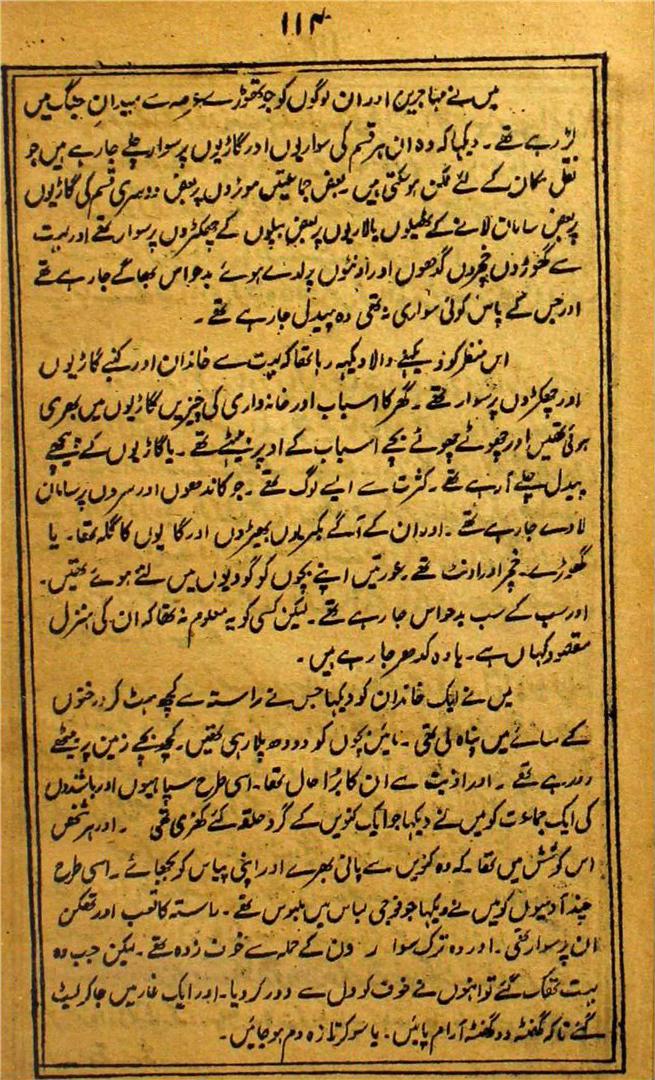 ۱۱۴
میں نے مہاجرین اور ان لوگوں کو جو تھوڑے عرصہ سے میدانِ جنگ میں
لڑ رہے تھے۔ دیکہا کہ وہ ان ہر قسم کی سواریوں اور گاڑیوں پر سوار چلے جا رہے ہیں جو
نقل مکان کے لئے ممکن ہو سکتی ہیں۔ بعض جماعتیں موٹروں پر بعض دوسری قسم کی گاڑیوں
پر بعض سامان لانے کے ٹھیلوں یا لاریوں پر بعض بیلوں کے چھکڑوں پر سوار تھے اور بہت
سے گھوڑوں خچروں گدھوں اور اونٹوں پر لدے ہوئے بدحواس بھاگے جا رہے تھے
اور جس کے پاس کوئی سواری نہ تھی وہ پیدل جا رہے تھے۔
اس منظر کو دیکہنے والا دیکہہ رہا تھا کہ بہت سے خاندان اور کنبے گاڑیوں
اور چھکڑوں پر سوار تھے۔ گھر کا اسباب اور خانہ داری کی چیزیں گاڑیوں میں بھری
ہوئی تھیں اور چھوٹے چھوٹے بچے اسباب کے اوپر بیٹھے تھے۔ یا گاڑیوں کے پیچھے
پیدل چلے آ رہے تھے۔ کثرت سے ایسے لوگ تھے۔ جو کاندھوں اور سروں پر سامان
لادے جا رہے تھے۔ اور ان کے آگے بکریوں بھیڑوں اور گایوں کا گلہ تھا۔ یا
گھوڑے۔ خچر اور اونٹ تھے۔ عورتیں اپنے بچوں کو گودیوں میں لئے ہوئے تھیں۔
اور سب کے سب بدحواس جا رہے تھے۔ لیکن کسی کو یہ معلوم نہ تھا کہ ان کی منزل
مقصود کہاں ہے۔ یا وہ کدھر جا رہے ہیں۔
میں نے ایک خاندان کو دیکہا جس نے راستہ سے کچھ ہٹ کر درختوں
کے سائے میں پناہ لی تھی۔ مائیں بچوں کو دودھ پلا رہی تھیں۔ کچھ بچے زمین پر بیٹھے
رو رہے تھے۔ اور اذیت سے ان کا بُرا حال تھا۔ اسی طرح سپاہیوں اور باشندوں
کی ایک جماعت کو میں نے دیکہا جو ایک کنویں کے گرد حلقہ کئے کھڑی تھی۔ اور ہر شخص
اس کوشش میں تھا۔ کہ وہ کنویں سے پانی بھرے اور اپنی پیاس کو بجھائے۔ اسی طرح
چند آدمیوں کو میں نے دیکہا جو فوجی لباس میں ملبوس تھے۔ راستہ کا تعب اور تھکن
ان پر سوار تھی۔ اور وہ ترک سوا ر دن کے حملہ سے خوف زدہ تھے۔ لیکن جب وہ
بہت تھک گئے تو انہوں نے خوف کو دل سے دور کر دیا۔ اور ایک غار میں جا کر لیٹ
گئے تاکہ گھنٹہ دو گھنٹہ آرام پائیں۔ یا سو کر تازہ دم ہو جائیں۔